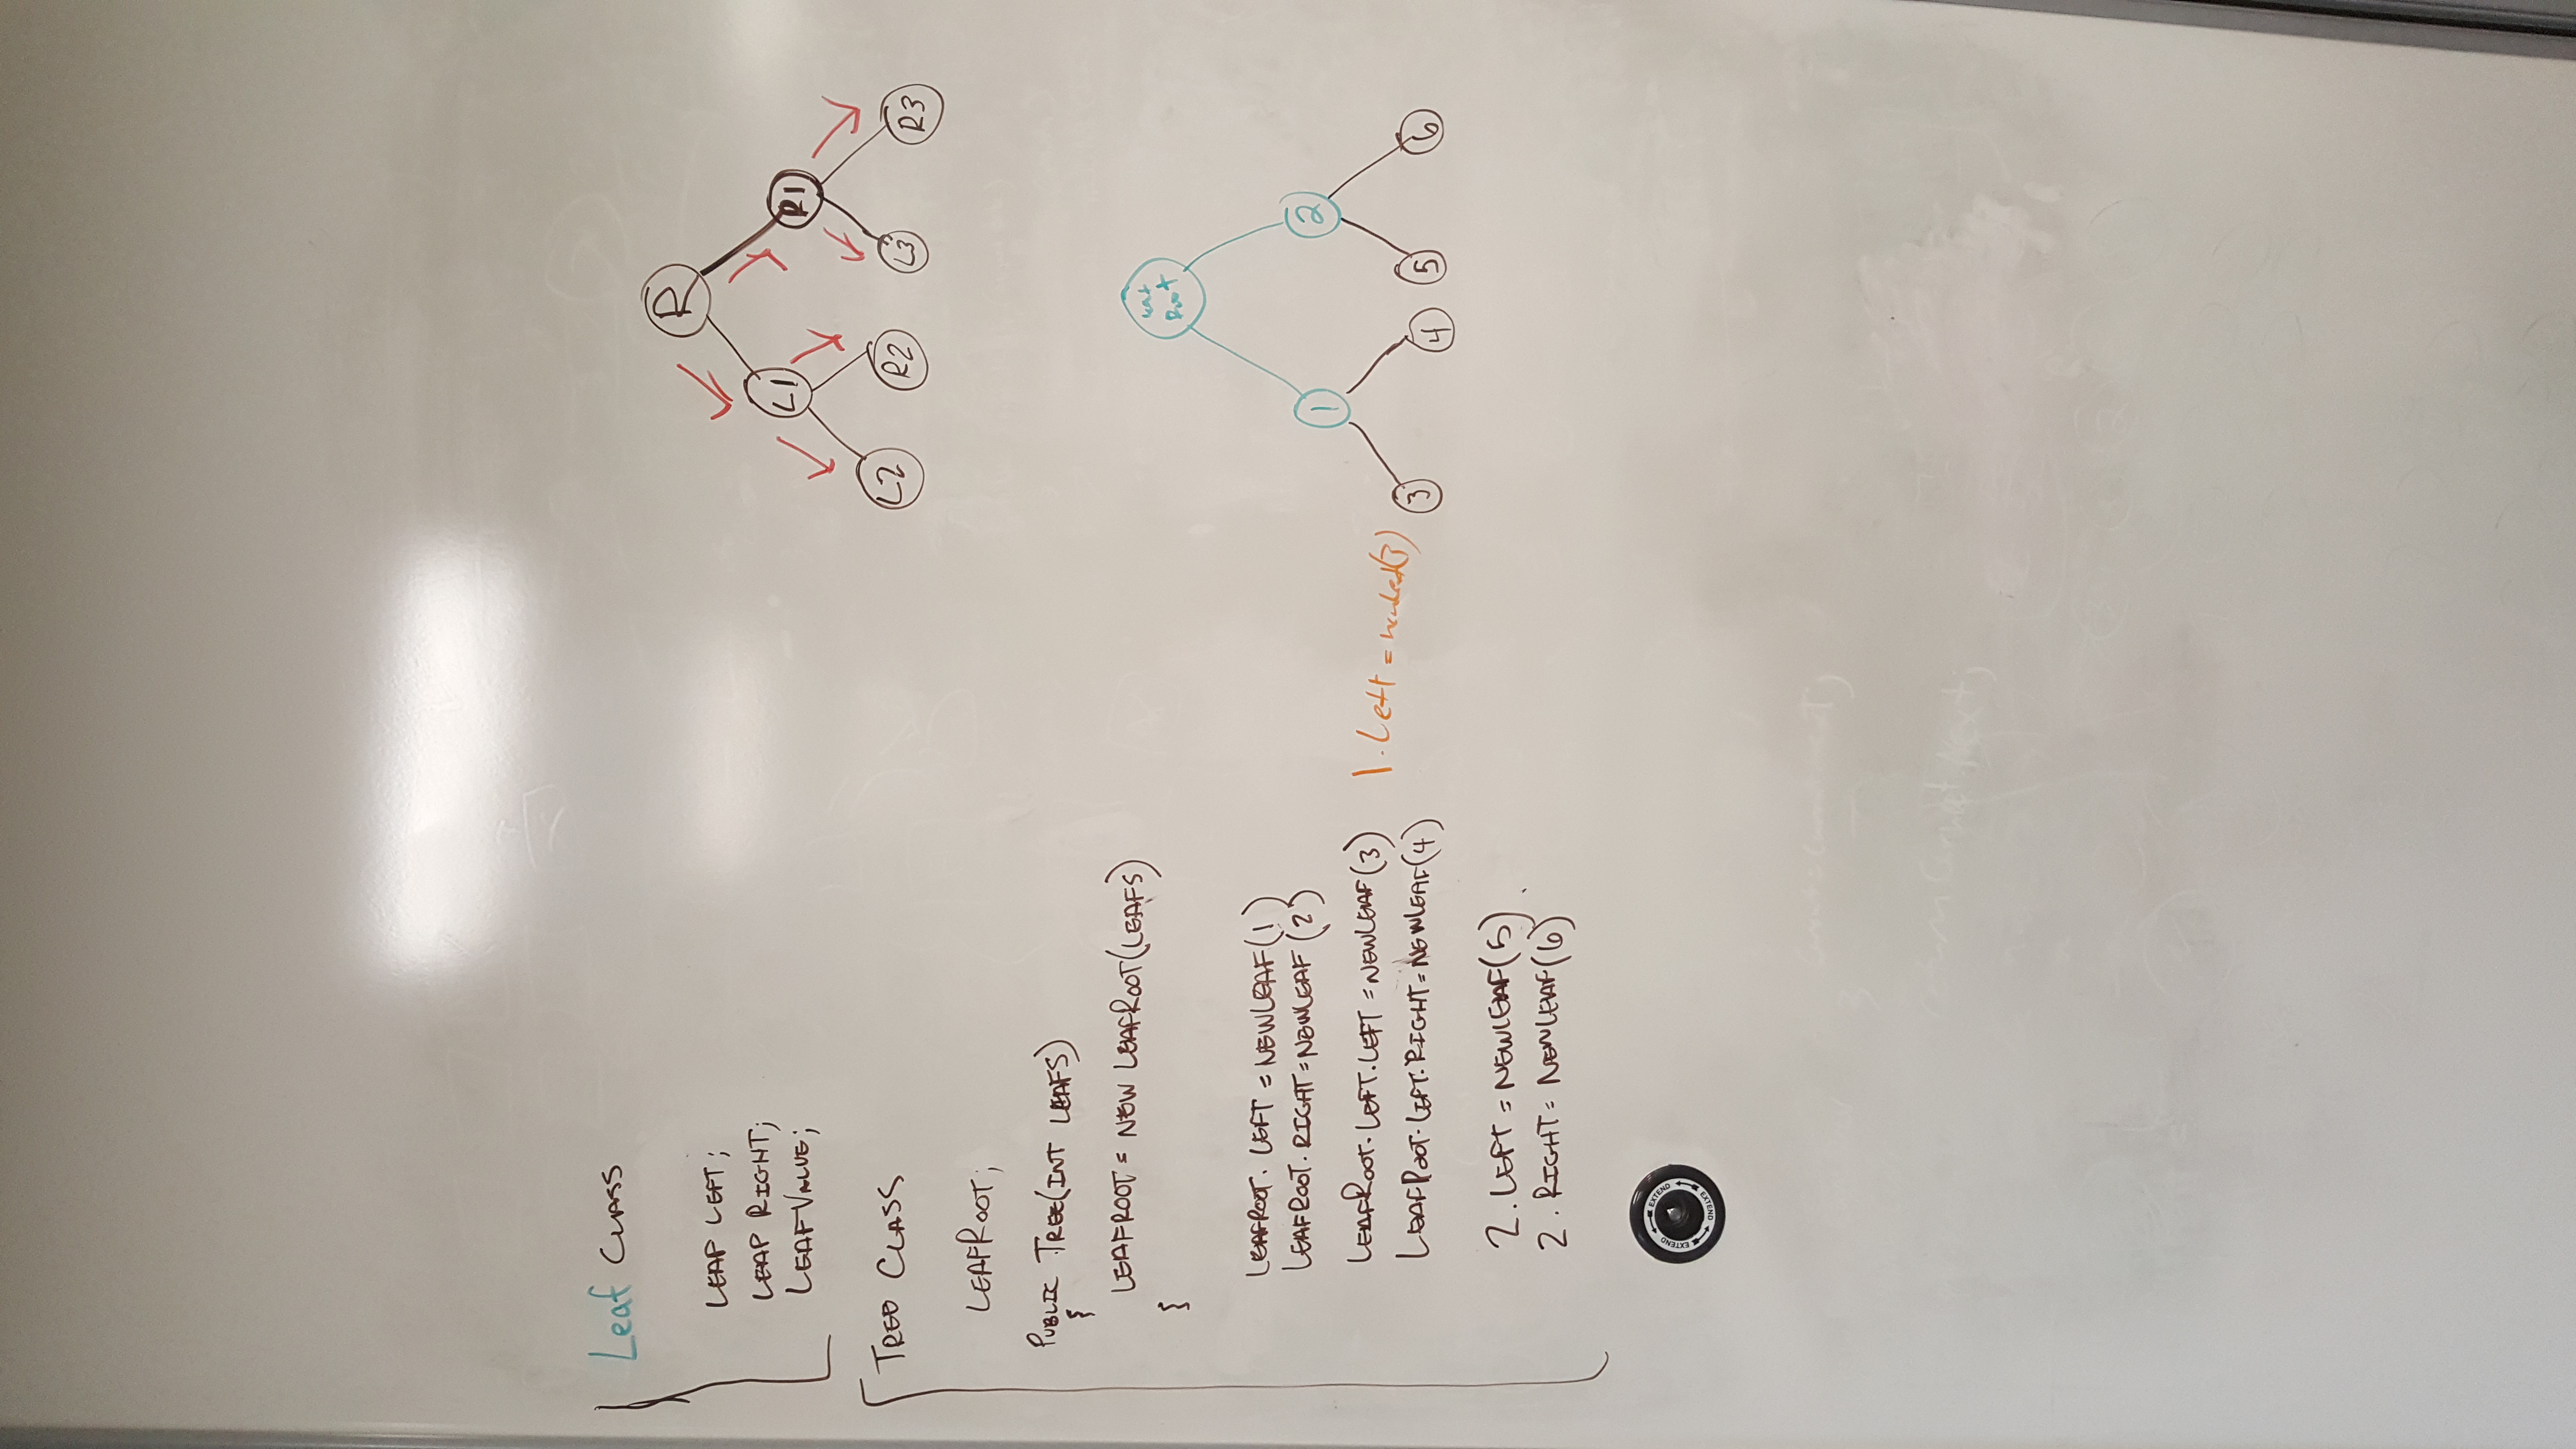 Leaf CLASS
LEAF LEFT;
LEAF RIGHT;
LEAFVALUE;
TREE CLASS
LEAFROOT;
PUBLIC TREE(INT LEAFS)
{
LEAFROOT = NEW LEAFROOT(LEAFS)
}
LEAFROOT. LEFT = NEWLEAF(1)
LEAFROOT. RIGHT = NEWLEAF (2)
LEAFROOT. LEFT. LEFT = NEWLEAF(3)
LEAFROOT. LEFT. RIGHT = NEWLEAF(4)
2. LEFT = NEWLEAF(5)
2. RIGHT = NEWLEAF(6)
1. Left =
R
L1
R1
L2
R2
L3
R3
Root
1
2
3
4
5
6
EXTEND EXTEND EXTEND
return Current.Next;